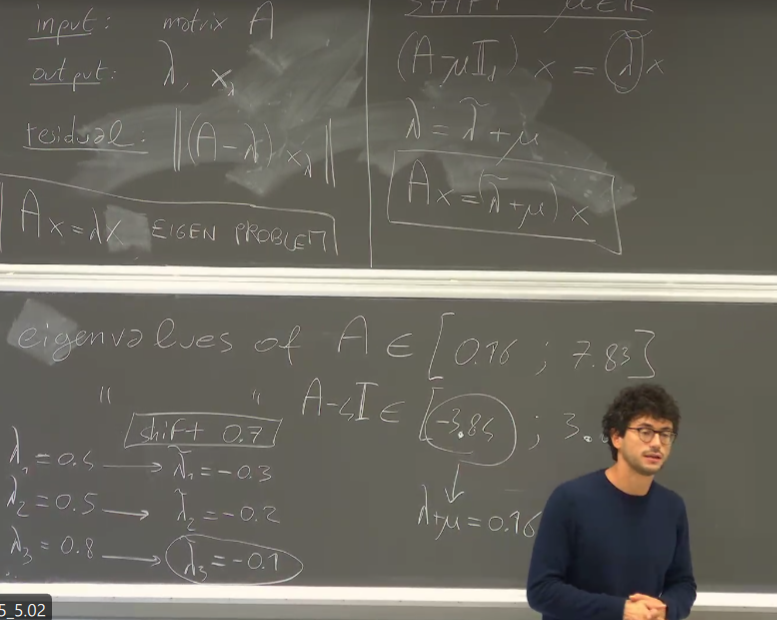 input: matrix A
output: λ, x_λ
residual: ||(A-λ) x_λ||
Ax=λx EIGEN PROBLEM
SHIFT μ∈ℝ
(A-μI) x = λ̃ x
λ = λ̃ + μ
Ax=(λ̃+μ) x
eigenvalues of A ∈ [0.16 ; 7.83]
" " A-4I ∈ [-3.84 ; 3.
λ+μ=0.16
shift 0.7
λ₁=0.4 → λ̃₁=-0.3
λ₂=0.5 → λ̃₂=-0.2
λ₃=0.8 → λ̃₃=-0.1
5_5.02